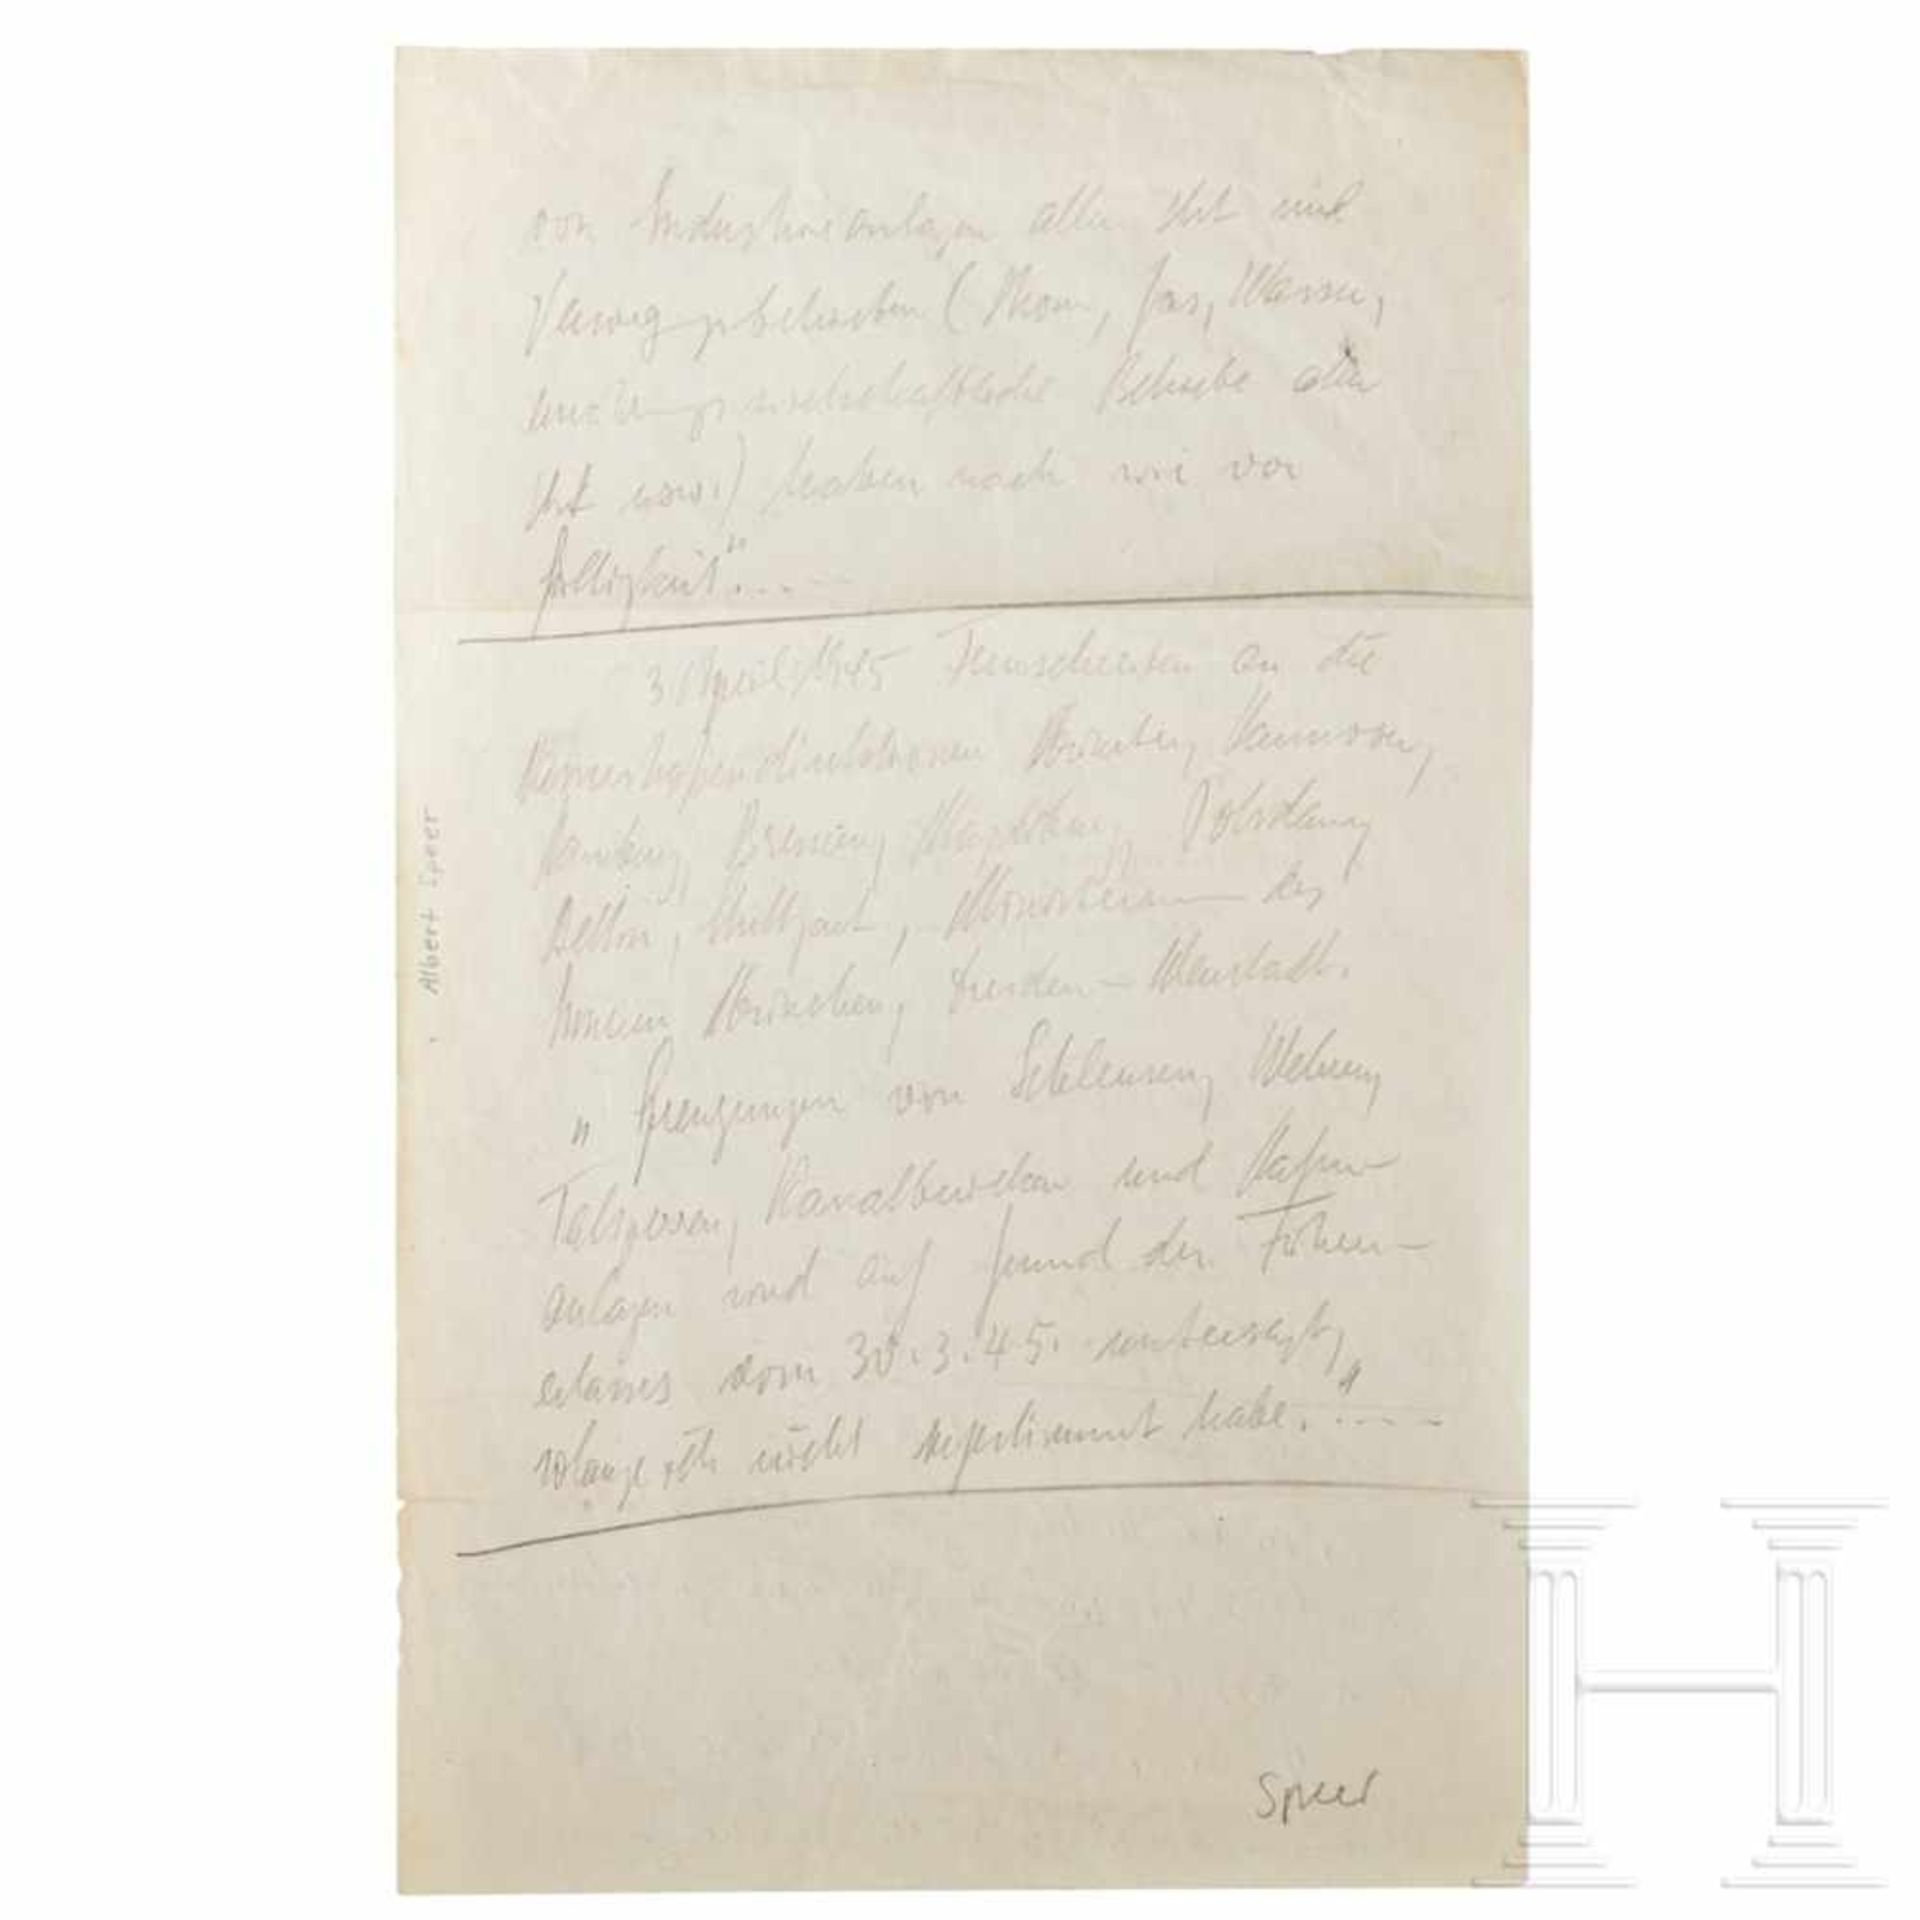 von Industrieanlagen aller Art und
Versorgungsbetrieben (Strom, Gas, Wasser,
ernährungswirtschaftliche Betriebe aller
Art usw.) haben nach wie vor
Gültigkeit"....
3 April 1945 Fernschreiben an die
Wasserstrassendirektionen Münster, Hannover,
Hamburg, Bremen, Magdeburg, Potsdam,
Stettin, Stuttgart, Ministerium des
Innern München, Dresden - Neustadt.
" Sprengungen von Schleusen, Wehren,
Talsperren, Kanalbrücken und Hafen-
anlagen sind auf Grund des Führer-
erlasses vom 30.3.45. untersagt,
solange ich nicht zugestimmt habe."....
Albert Speer
Speer
H